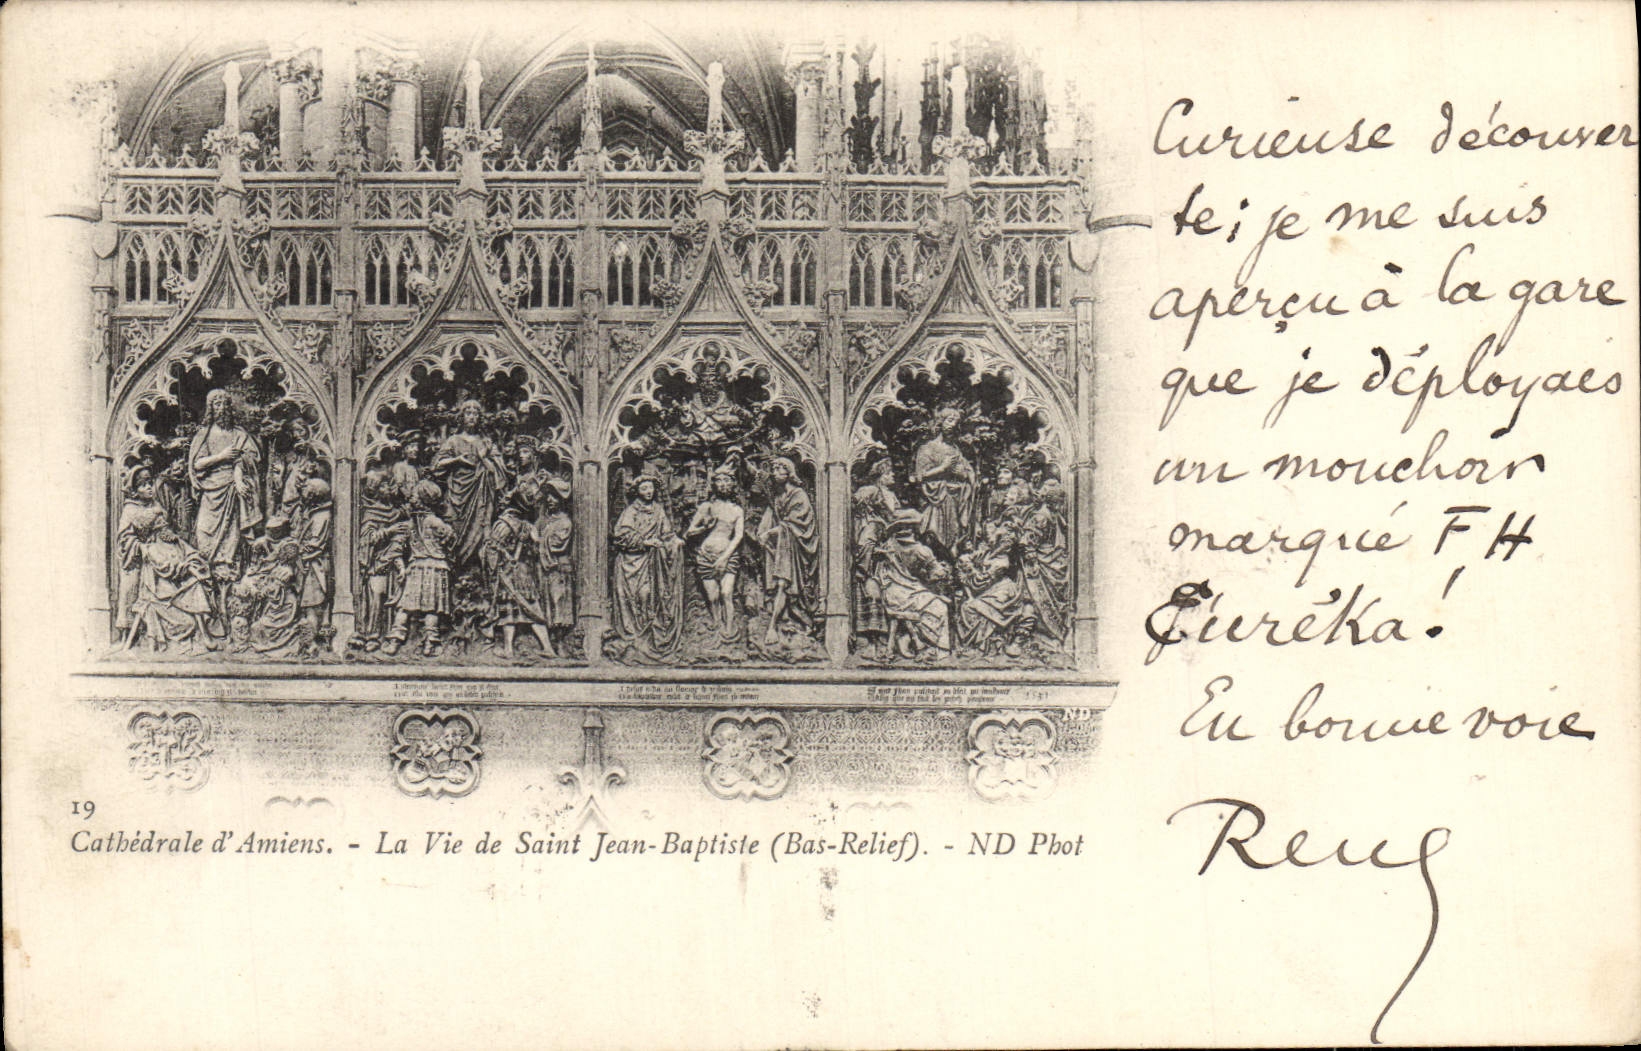 Curieuse découver
te; je me suis
aperçu à la gare
que je déployais
un mouchoir
marqué F H
Eurêka!
En bonne voie
René
ND
1531
19
Cathédrale d'Amiens. - La Vie de Saint Jean-Baptiste (Bas-Relief). - ND Phot